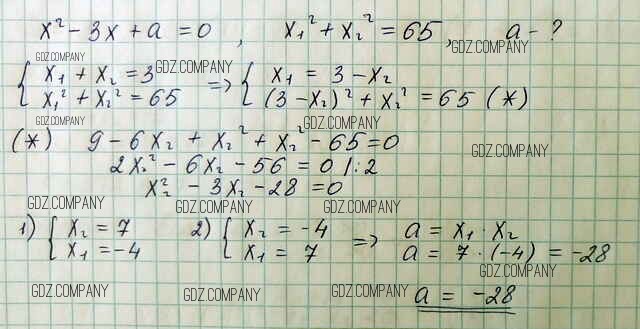 x² - 3x + a = 0, x₁² + x₂² = 65, a - ?
GDZ.COMPANY
GDZ.COMPANY
{ x₁ + x₂ = 3 => { x₁ = 3 - x₂
x₁² + x₂² = 65 (3 - x₂)² + x₂² = 65 (*)
GDZ.COMPANY GDZ.COMPANY
(*) 9 - 6x₂ + x₂² + x₂² - 65 = 0
GDZ.COMPANY
2x₂² - 6x₂ - 56 = 0 /:2
x₂² - 3x₂ - 28 = 0
GDZ.COMPANY GDZ.COMPANY GDZ.COMPANY
1) { x₂ = 7 2) { x₂ = -4 => a = x₁ · x₂
x₁ = -4 x₁ = 7 a = 7 · (-4) = -28
GDZ.COMPANY
GDZ.COMPANY GDZ.COMPANY GDZ.COMPANY
a = -28